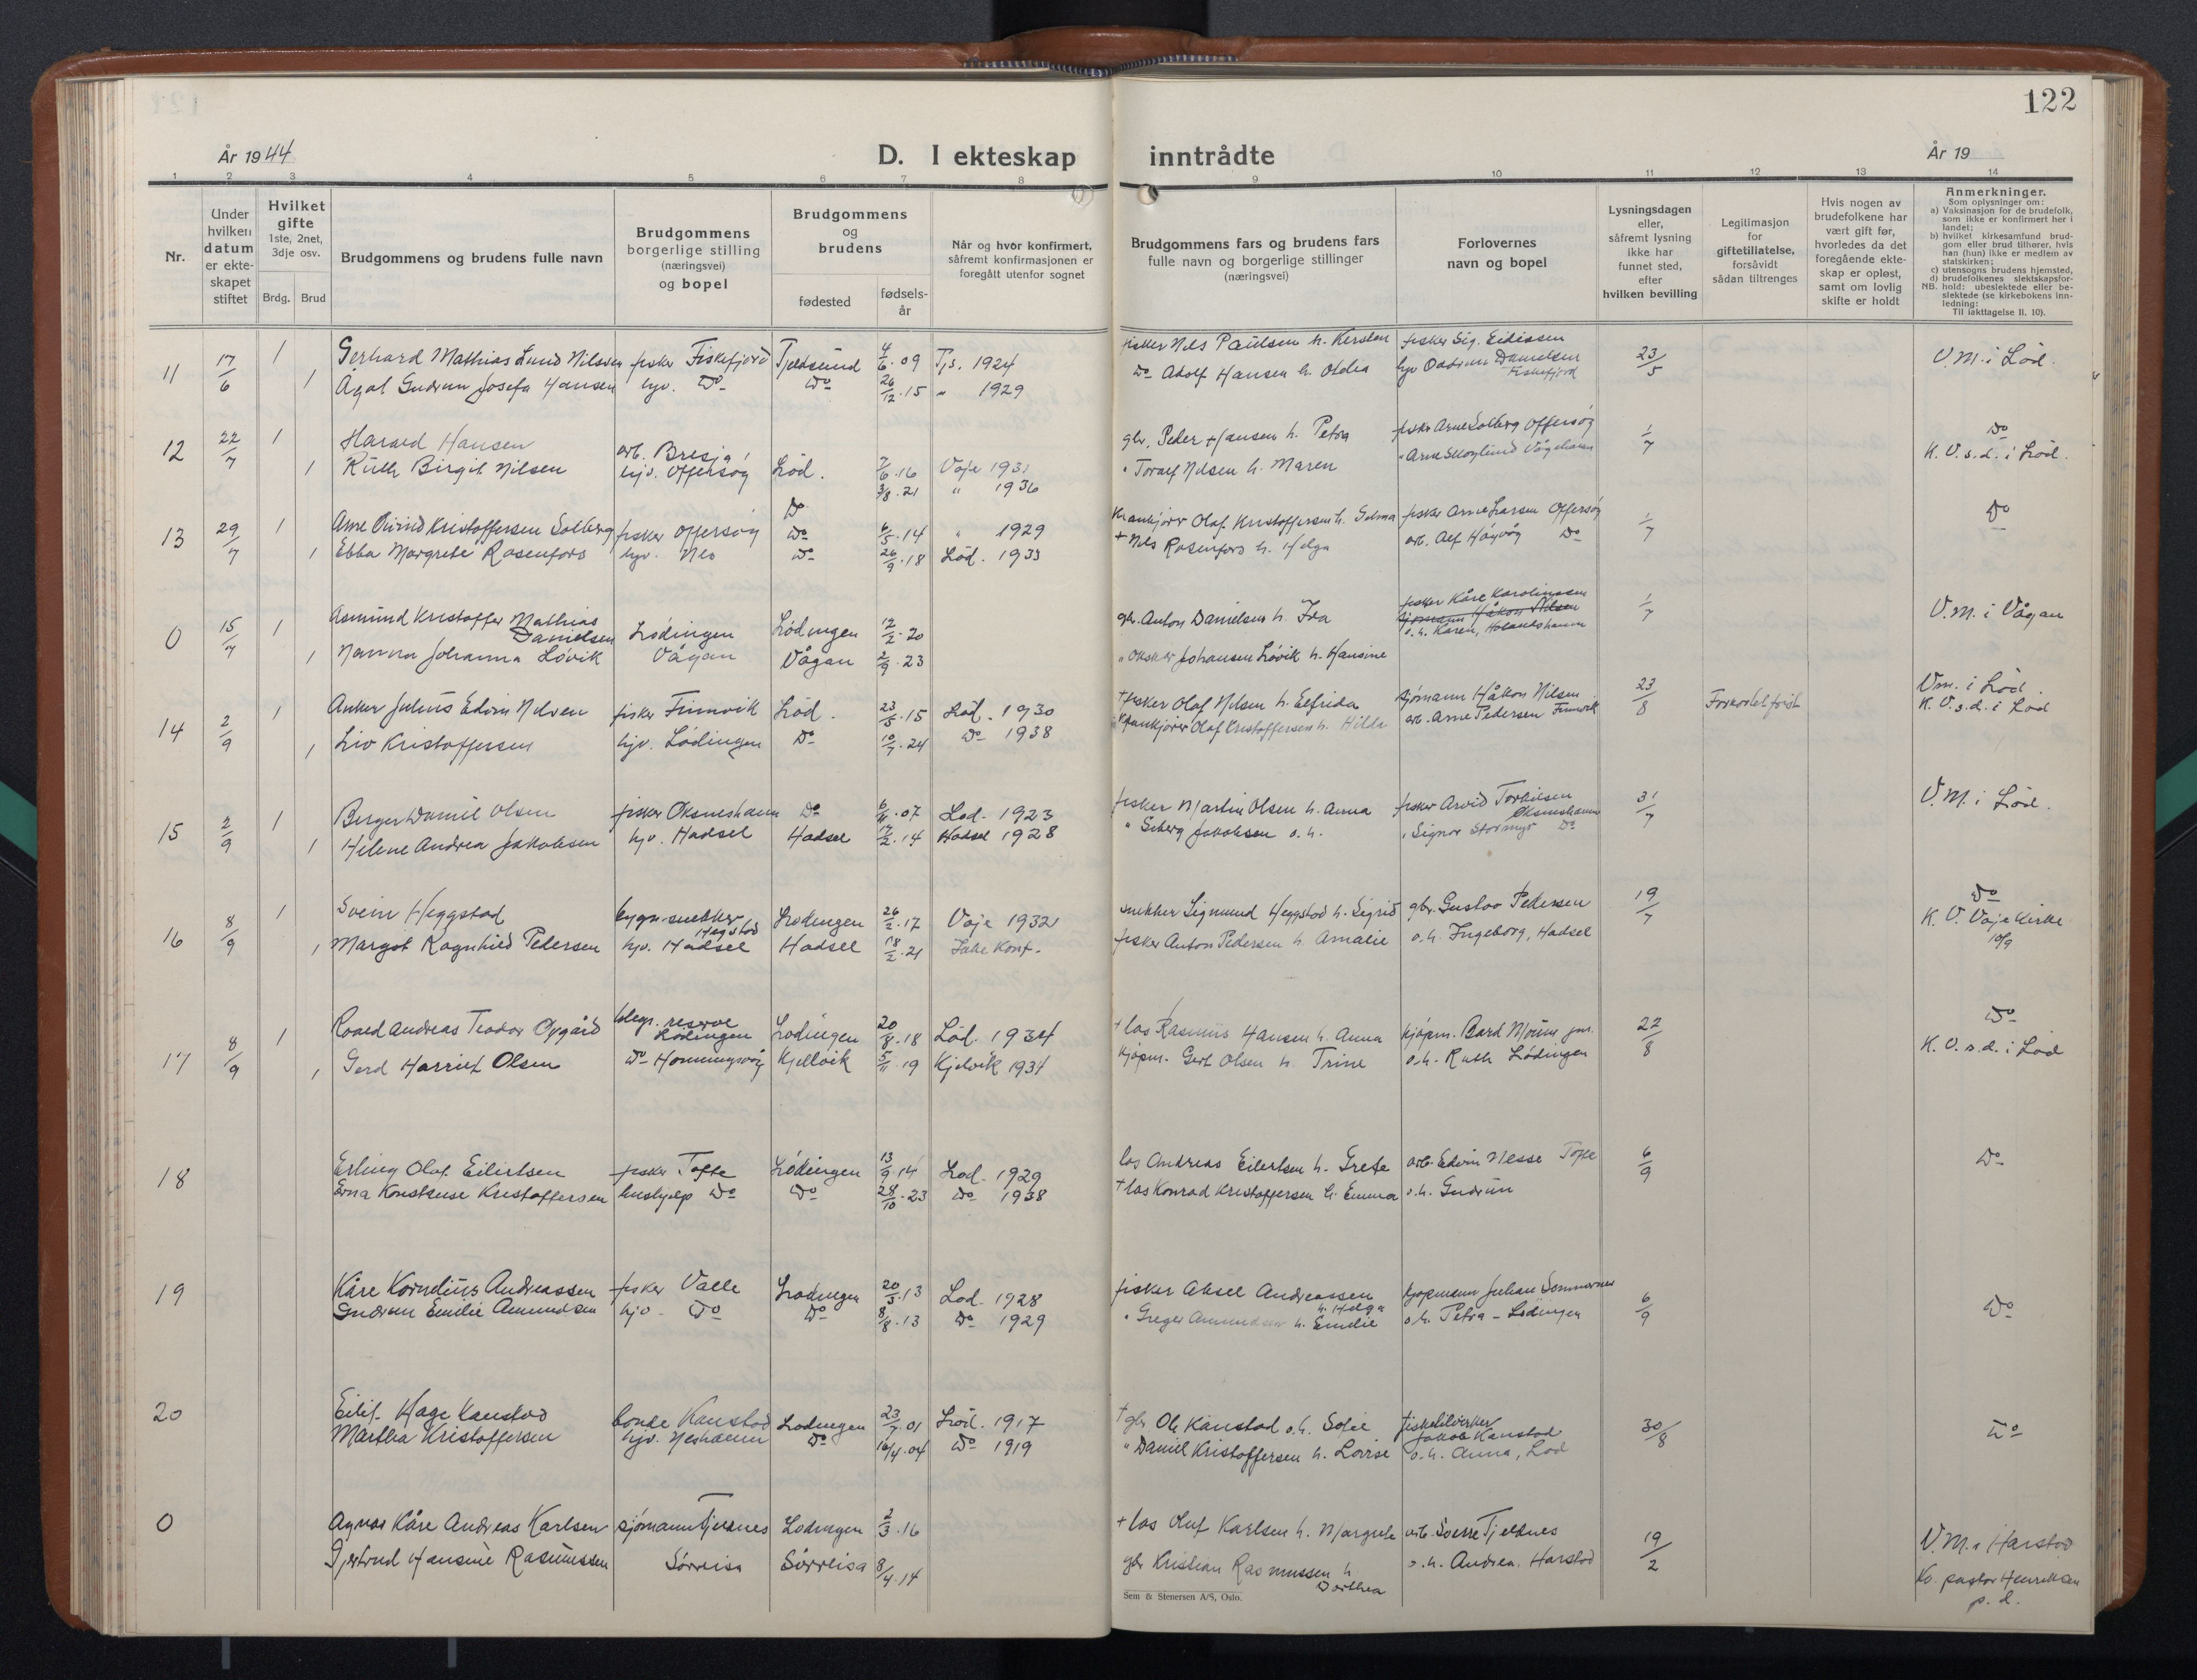 122
År 1944
D. I ekteskap inntrådte
År 19
1 2 3 4 5 6 7 8 9 10 11 12 13 14
Nr.
Under hvilken datum er ekteskapet stiftet
Hvilket gifte
1ste, 2net, 3dje osv.
Brdg. Brud
Brudgommens og brudens fulle navn
Brudgommens borgerlige stilling (næringsvei) og bopel
Brudgommens og brudens
fødested
fødselsår
Når og hvor konfirmert, såfremt konfirmasjonen er foregått utenfor sognet
Brudgommens fars og brudens fars fulle navn og borgerlige stillinger (næringsvei)
Forlovernes navn og bopel
Lysningsdagen eller, såfremt lysning ikke har funnet sted, efter hvilken bevilling
Legitimasjon for giftetillatelse, forsåvidt sådan tiltrenges
Hvis nogen av brudefolkene har vært gift før, hvorledes da det foregående ekteskap er opløst, samt om lovlig skifte er holdt
Anmerkninger.
Som oplysninger om:
a) Vaksinasjon for de brudefolk, som ikke er konfirmert her i landet;
b) hvilket kirkesamfund brudgom eller brud tilhører, hvis han (hun) ikke er medlem av statskirken;
c) utensogns brudens hjemsted,
d) brudefolkenes slektskapsforhold: ubeslektede eller beslektede (se kirkebokens innledning:
NB.
Til iakttagelse II. 10).
11 17/6 1 Gerhard Mathias Lund Nilssen fisker Fiskefjord Tjeldsund 4/6.09 Tjs. 1924 fisker Nils Paulsen h. Kersten fisker Sig. Eidissen 23/5 V.M. i Lød.
1 Ågot Gudrun Josefa Hansen hjv. Do Do 26/12.15 " 1929 Do Adolf Hansen h. Otelia hjv Danielsen Fiskefjord
12 22/7 1 Harald Hansen arb. Bresja, gbr. Peder Hansen h. Petra fisker Arne Solberg Offersøy 1/7 Do
1 Ruth Birgit Nilsen hjv. Offersøy Lød. 7/6.16 Voje 1931 " Toralf Nilsen h. Maren " Arne Skoglund Vågehamn K.V.s.d. i Lød.
3/8.21 " 1936
Do
13 29/7 1 Arne Eivind Kristoffersen Solberg fisker Offersøy Do 6/5.14 " 1929 Krankjører Olaf Kristoffersen h. Selma fisker Arne Larsen Offersøy 1/7 Do
1 Ebba Margrete Rosenfors hjv. Nes Do 26/9.18 Lød. 1933 + Nils Rosenfors h. Helga arb. Alf Høyvåg Do
0 15/7 1 Asmund Kristoffer Mathias Danielsen Lødingen Lødingen 12/2.20 gbr. Anton Danielsen h. Ida fisker Kåre Karolinssen 1/7 V.M. i Vågan
sjømann Håkon Nilsen
o.h. Karen,
1 Nanna Johanna Løvik Vågan Vågan 2/9.23 " Oskar Johansen Løvik h. Hansine
14 2/9 1 Anker Julius Edvin Nilsen fisker Finnvik Lød. 23/5.15 Lød. 1930 + fisker Olaf Nilsen h. Elfrida sjømann Håkon Nilsen 23/8 Forkortet frist V.m. i Lød.
1 Liv Kristoffersen hjv. Lødingen Do 10/7.24 Do 1938 Krankjører Olaf Kristoffersen h. Hilda arb. Arne Pedersen Finnvik K.V.s.d. i Lød
15 2/9 1 Birger Daniel Olsen fisker Øksneshamn Do 6/11.07 Lød. 1923 fisker Martin Olsen h. Anna fisker Arvid Torkilsen Øksneshamn 31/7 V.M. i Lød.
1 Helene Andrea Jakobsen hjv. Hadsel Hadsel 17/2.14 Hadsel 1928 " Seberg Jakobsen o.h. " Signor Stormyr Do
16 8/9 1 Svein Heggstad bygn.snekker Hegstad Lødingen 26/2.17 Voje 1932 snekker Sigmund Heggstad h. Sigrid gbr. Gustav Pedersen 19/7 Do
1 Margot Ragnhild Pedersen hjv. Hadsel Hadsel 18/2.21 Ikke Konf. fisker Anton Pedersen h. Amalie o.h. Ingeborg, Hadsel K.V. Voje Kirke 10/9
17 8/9 1 Roald Andreas Teodor Opgård telegr. reserve Lødingen Lødingen 20/8.18 Lød. 1934 + los Rasmus Hansen h. Anna kjøpm. Bard jun. 22/8 Do
1 Gerd Harriet Olsen Do Honningsvåg Kjellvik 5/11.19 Kjelvik 1934 kjøpm. Gert Olsen h. Trine o.h. Ruth Lødingen K.V.s.d. i Lød
18 Erling Olaf Eilertsen fisker Tofte Lødingen 13/9.14 Lød. 1929 los Andreas Eilertsen h. Grete arb. Edvin Nesse Tofte 6/9 Do
Erna Konstanse Kristoffersen hushjelp Do Do 28/10.23 Do 1938 + los Konrad Kristoffersen h. Emma o.h. Gudrun
19 Kåre Kornelius Andreassen fisker Valle Lødingen 20/3.13 Lød. 1928 fisker Aksel Andreassen h. Helga kjøpmann Julian 6/9
Gudrun Emilie Amundsen hjv. Do Do 8/8.13 Do 1929 " Greger Amundsen h. Emelie o.h. Petra - Lødingen Do
20 Eilif Hage Kanstad bonde Kanstad Lødingen 23/7.01 Lød. 1917 + gbr Ole Kanstad o.h. Sofie fisketilvirker Jakob Kanstad 30/8 Do
Martha Kristoffersen hjv. Neshamn Do 16/4.04 Do 1919 " Daniel Kristoffersen h. Lovise o.h. Anna, Lød
0 Agnar Kåre Andreas Karlsen sjømann Tjeldnes Lødingen 2/3.16 + los Oluf Karlsen h. Margrete arb. Sverre Tjeldnes 19/2 V.M. i Harstad
Gjertrud Hansine Rasmussen Sørreisa Sørreisa 8/4.14 gbr Kristian Rasmussen h Dorthea o.h. Andrea. Harstad Ko. pastor Henriksen
p. d.
Sem & Stenersen A/S, Oslo.